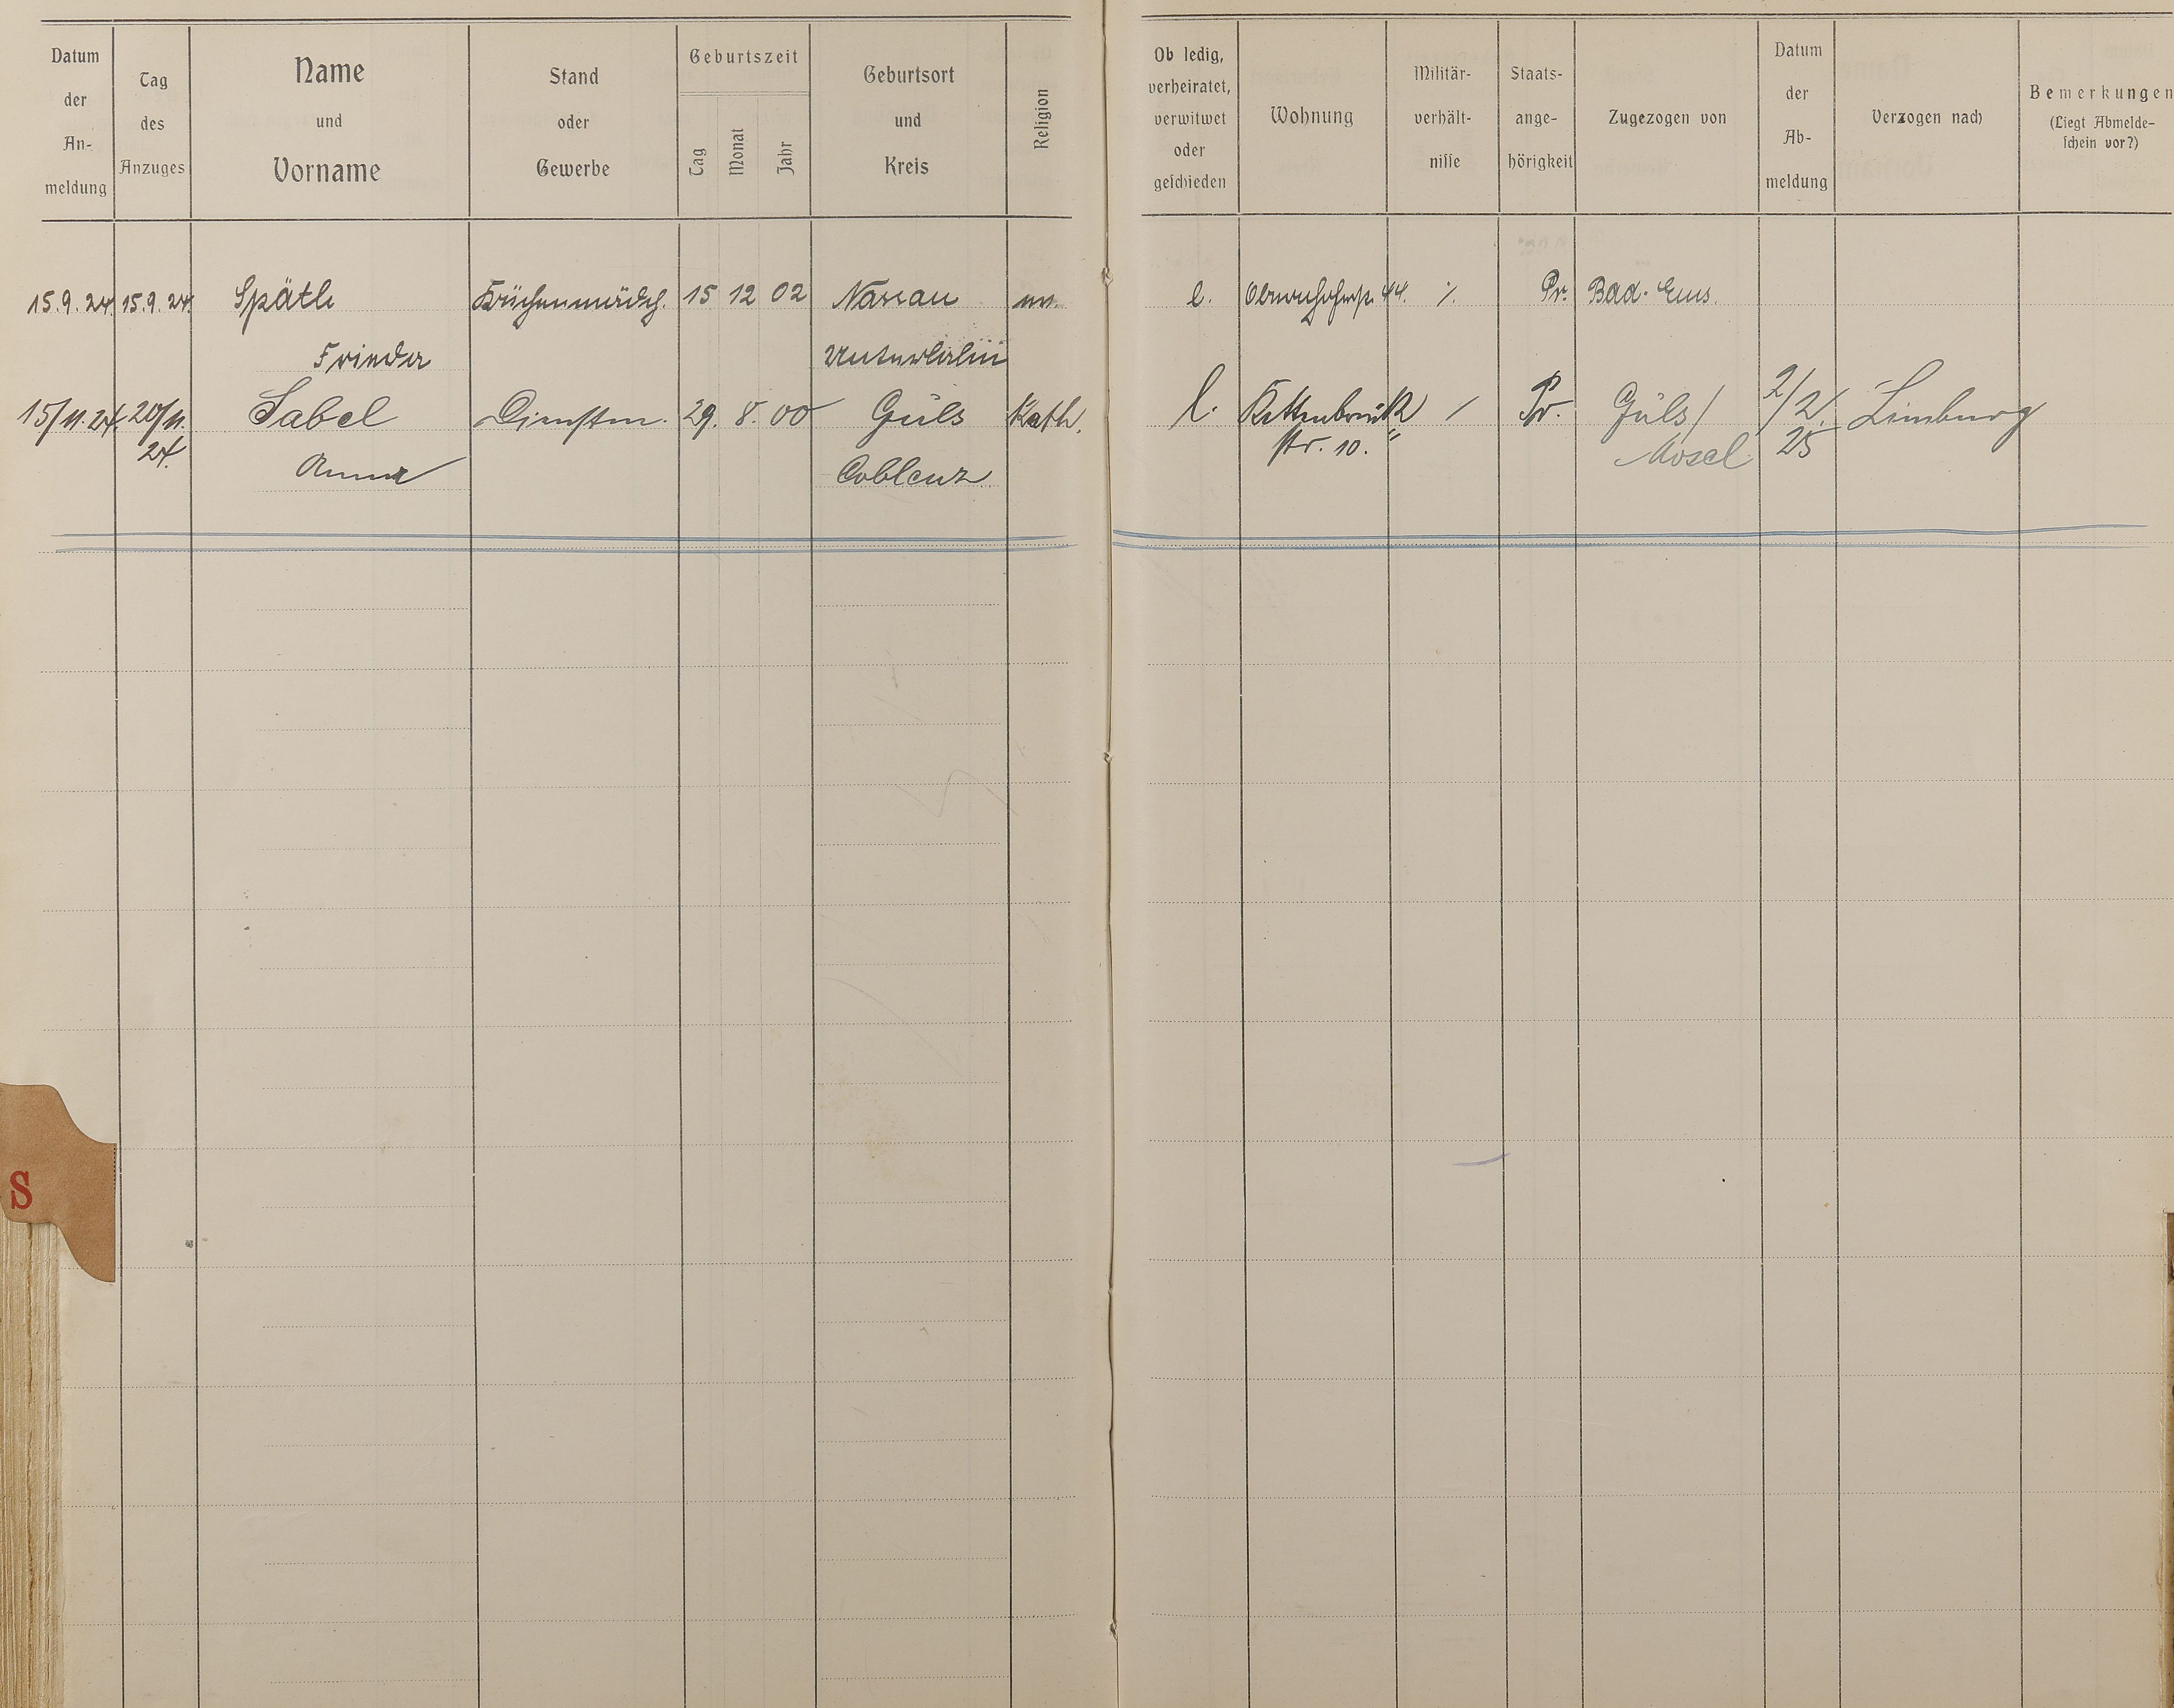 Datum der An- meldung
Tag des Anzuges
Name und Vorname
Stand oder Gewerbe
Geburtszeit
Tag Monat Jahr
Geburtsort und Kreis
Religion
Ob ledig, verheiratet, verwitwet oder geschieden
Wohnung
Militär- verhält- nisse
Staats- ange- hörigkeit
Zugezogen von
Datum der Ab- meldung
Verzogen nach
Bemerkungen
(Liegt Abmelde- schein vor?)
15.9.24. 15.9.24. Späth Küchenmädch. 15 12 02 Nassau l. 44. Pr. Bad-Ems.
Frieda Unterlahn
15/11.24. 20/11. Sabel Dienstm. 29. 8. 00 Güls Kath. l. / Pr. Güls/ 2/2. Limburg
24. str. 10. Mosel 25
Anna Coblenz
S